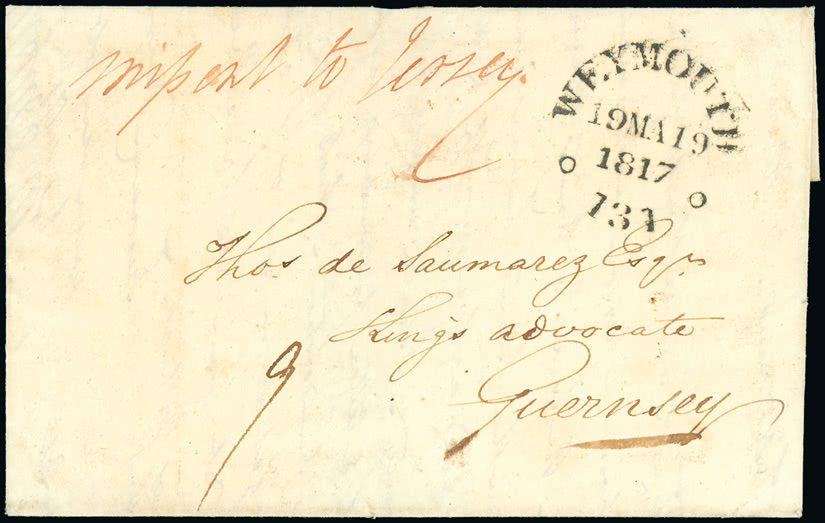 missent to Jersey
WEYMOUTH
19MA19
1817
131
Thos de Saumarez Esqr
Kings advocate
9
Guernsey